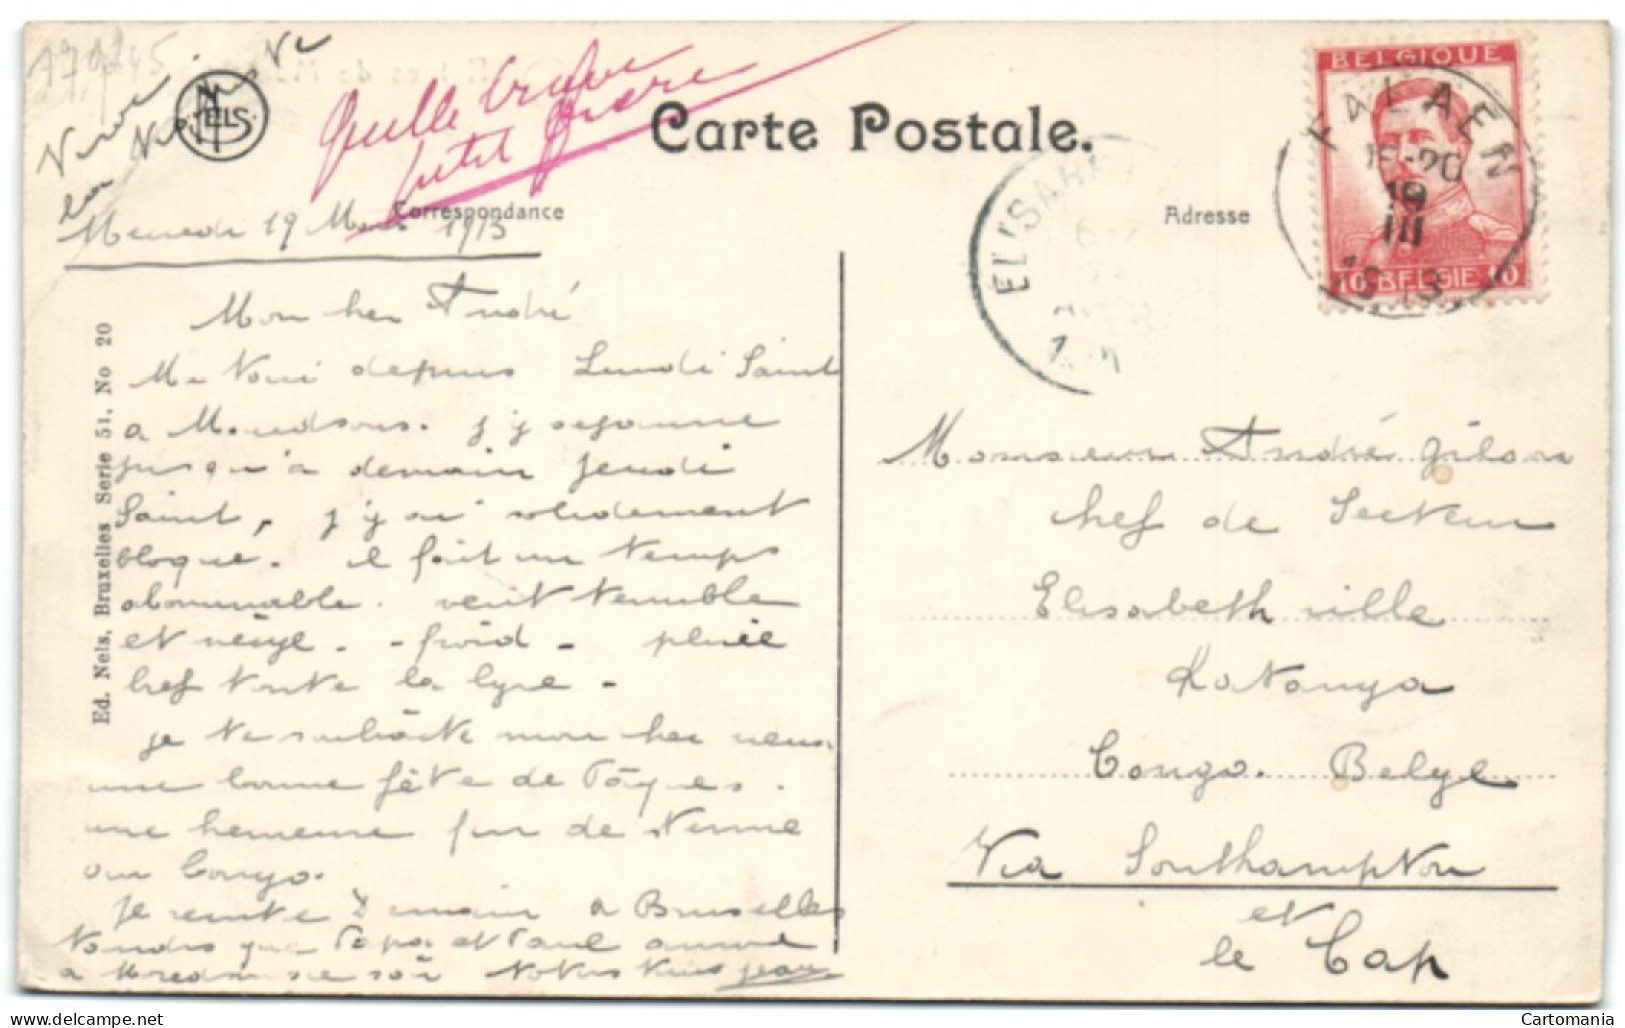 NELS
Quelle
petit
Carte Postale.
Correspondance
Adresse
Mercredi 19 Mars 1913
Mon cher André
Me Voici depuis Lundi Saint
a j'y sejourne
jusqu'a demain jeudi
Saint, j'y ai solidement
bloqué. il fait un temps
abominable. vent terrible
et neige. - froid - pluie
bref toute la lyre -
je te souhaite mon cher vieux
une bonne fête de Pâques.
une heureuse fin de terme
au Congo.
je rentre Demain a Bruxelles
tandis que Papa et Paul arrive
a ce soir Jean
Ed. Nels, Bruxelles Serie 51, No 20
BELGIQUE
10 BELGIE 10
FALAEN
19
III
ELISAB
Monsieur André Gilson
chef de Secteur
Elisabethville
Katanga
Congo. Belge
Via Southampton
et
le Cap
Cartomania